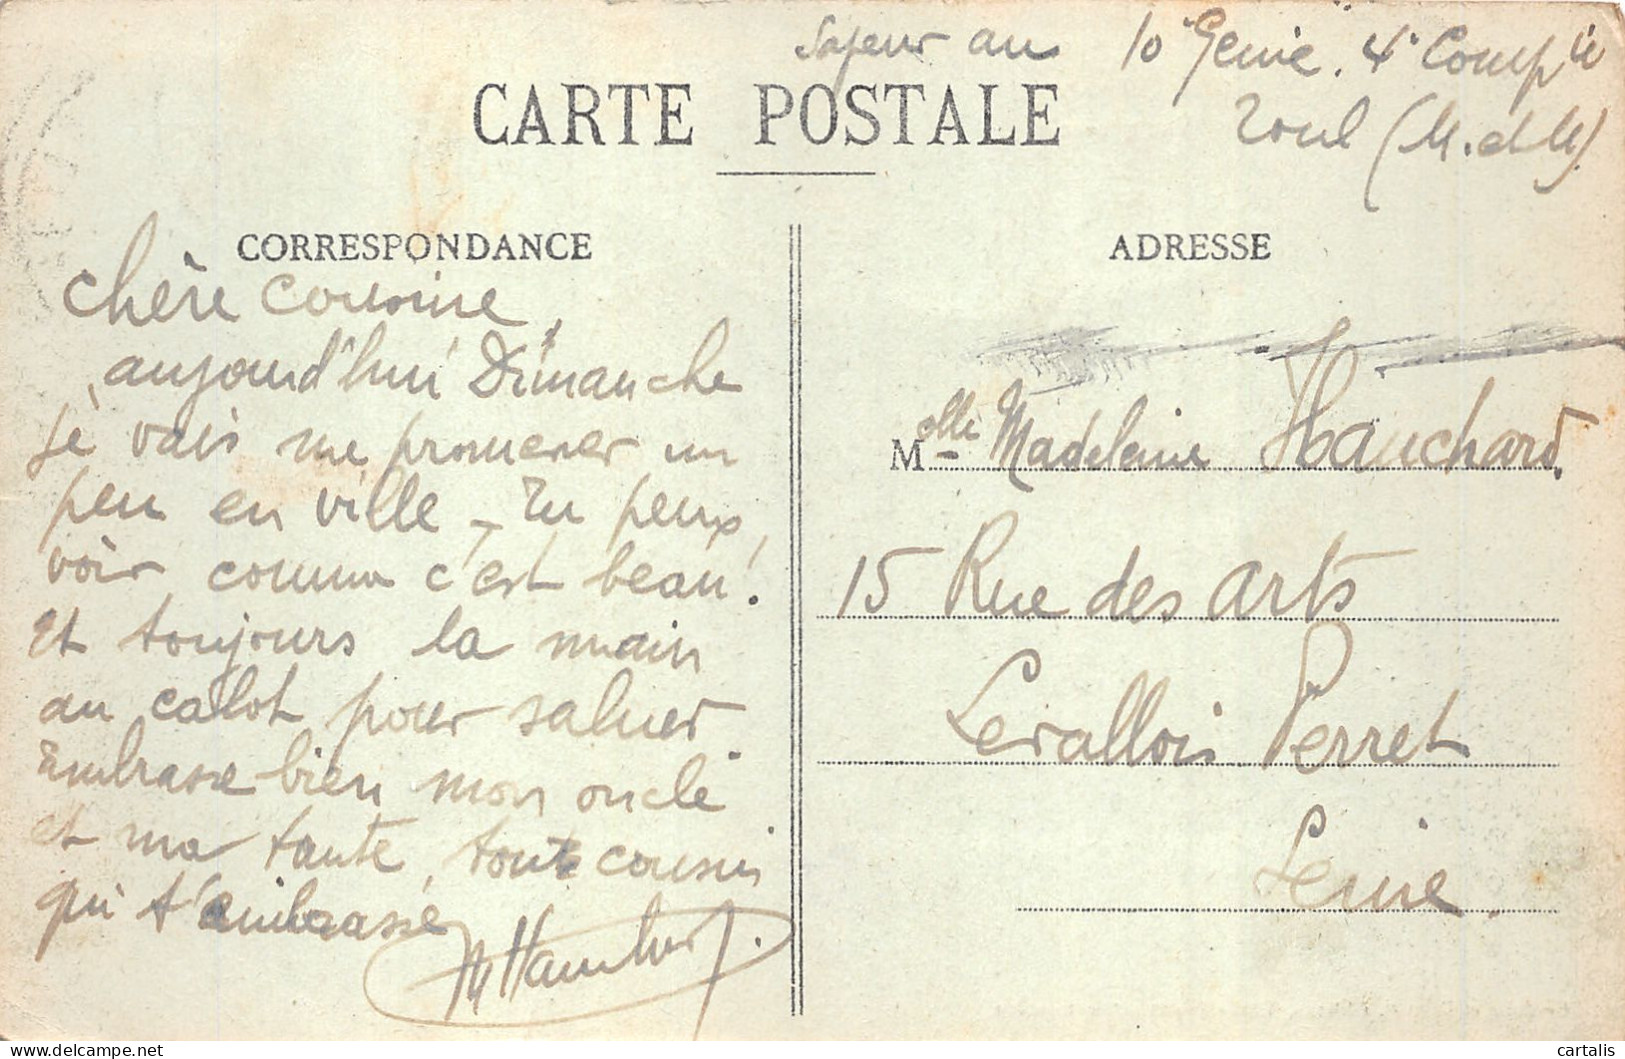 Sapeur au 10e Génie. 4e Compie
Toul (M. et M)
CARTE POSTALE
CORRESPONDANCE
Chère Cousine,
aujourd'hui Dimanche
je vais me promener un
peu en ville - Tu peux
voir comme c'est beau!
Et toujours la main
au calot pour saluer.
Embrasse bien mon oncle
et ma tante, tout cousin
qui t'embrasse
ADRESSE
Melle Madeleine Hauchard.
15 Rue des arts
Levallois Perret
Seine.
cartalis